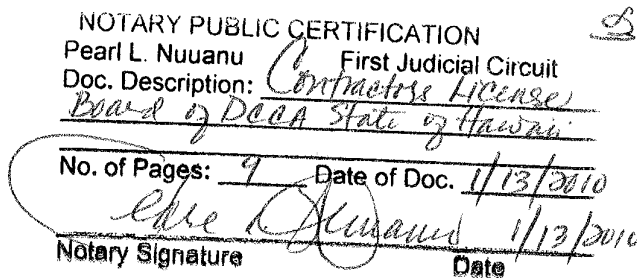 NOTARY PUBLIC CERTIFICATION
Pearl L. Nuuanu First Judicial Circuit
Doc. Description: Contractors License
Board of DCCA State of Hawaii
No. of Pages: 9 Date of Doc. 1/13/2010
1/13/2010
Notary Signature Date